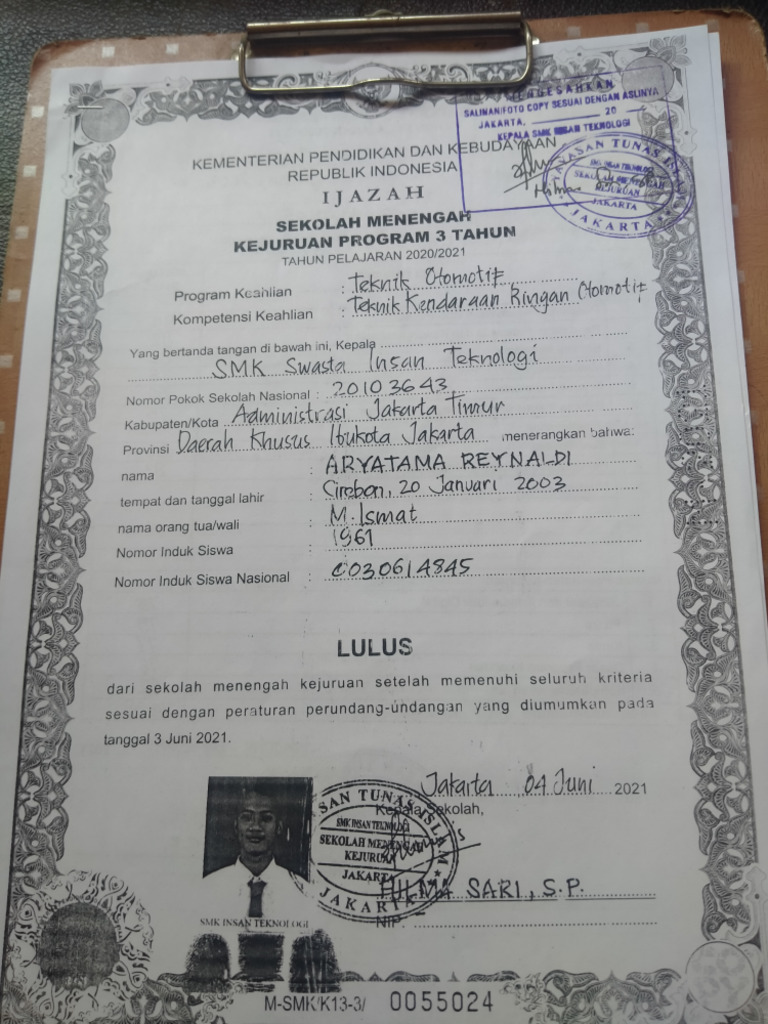 MENGESAHKAN
SALINAN/FOTO COPY SESUAI DENGAN ASLINYA
JAKARTA, 20
KEPALA SMK INSAN TEKNOLOGI
YAYASAN TUNAS ISLAM
SMK INSAN TEKNOLOGI
SEKOLAH MENENGAH
KEJURUAN
JAKARTA
JAKARTA
KEMENTERIAN PENDIDIKAN DAN KEBUDAYAAN
REPUBLIK INDONESIA
IJAZAH
SEKOLAH MENENGAH
KEJURUAN PROGRAM 3 TAHUN
TAHUN PELAJARAN 2020/2021
Program Keahlian : Teknik Otomotif
Kompetensi Keahlian : Teknik Kendaraan Ringan Otomotif
Yang bertanda tangan di bawah ini, Kepala
SMK Swasta Insan Teknologi
Nomor Pokok Sekolah Nasional : 20103643
Kabupaten/Kota Administrasi Jakarta Timur
Provinsi Daerah Khusus Ibukota Jakarta menerangkan bahwa:
nama : ARYATAMA REYNALDI
tempat dan tanggal lahir : Cirebon, 20 Januari 2003
nama orang tua/wali : M. Ismat
Nomor Induk Siswa : 1961
Nomor Induk Siswa Nasional : 0030614845
LULUS
dari sekolah menengah kejuruan setelah memenuhi seluruh kriteria
sesuai dengan peraturan perundang-undangan yang diumumkan pada
tanggal 3 Juni 2021.
Jakarta 04 Juni 2021
Kepala Sekolah,
YAYASAN TUNAS ISLAM
SMK INSAN TEKNOLOGI
SEKOLAH MENENGAH
KEJURUAN
JAKARTA
JAKARTA
HILMA SARI, S.P.
NIP
SMK INSAN TEKNOLOGI
M-SMK/K13-3/ 0055024